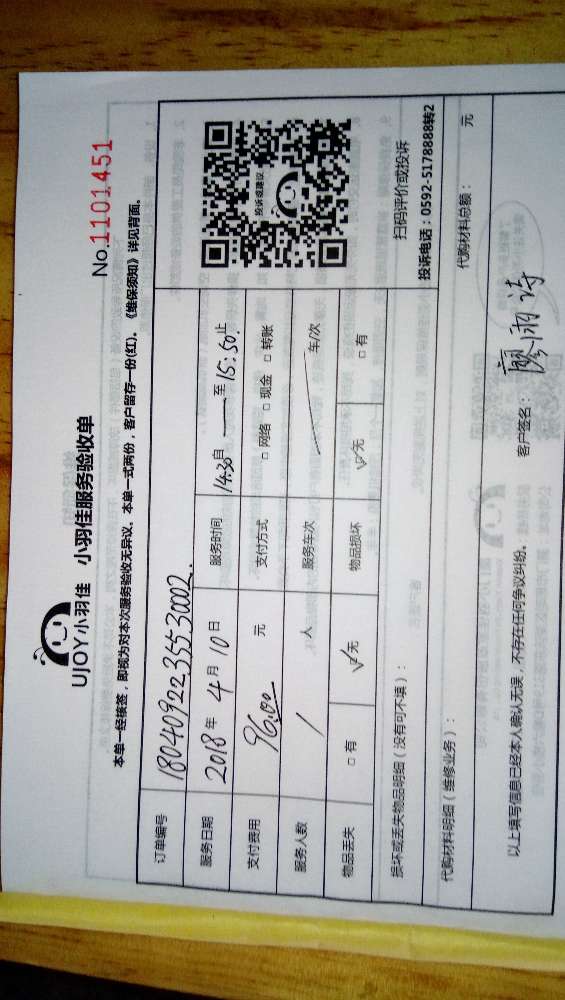 No.1101451
UJOY小羽佳 小羽佳服务验收单
本单一经核签，即视为对本次服务验收无异议。本单一式两份，客户留存一份(红)。《维保须知》详见背面。
订单编号 180409223553002.
服务日期 2018年4月10日 服务时间 14:30自——至15:50.止
支付费用 96.00 元 支付方式 □网络 □现金 □转账
服务人数 / 人 服务车次 车/次
物品丢失 □有 ☑无 物品损坏 ☑无 □有
投诉或建议
扫码评价或投诉
投诉电话：0592-5178888转2
损坏或丢失物品明细（没有可不填）：
代购材料明细（维修业务）： 代购材料总额： 元
以上填写信息已经本人确认无误，不存在任何争议纠纷。 客户签名： 廖雨诗